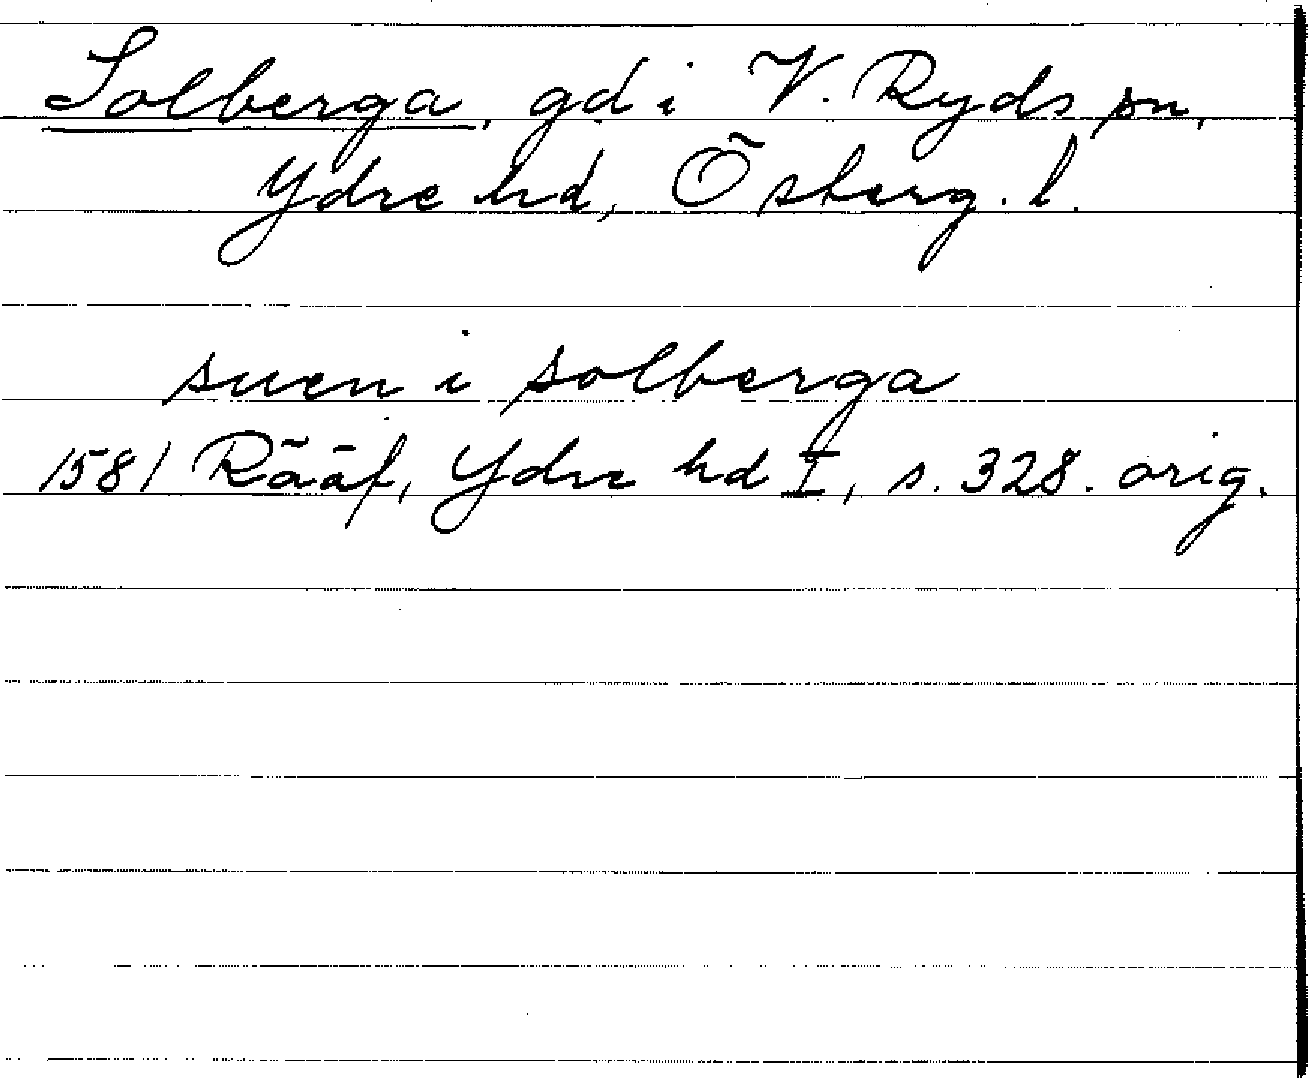 Solberga, gd i V. Ryds sn,
Ydre hd, Österg. l.
suen i solberga
1581 Rääf, Ydre hd I, s. 328. orig.